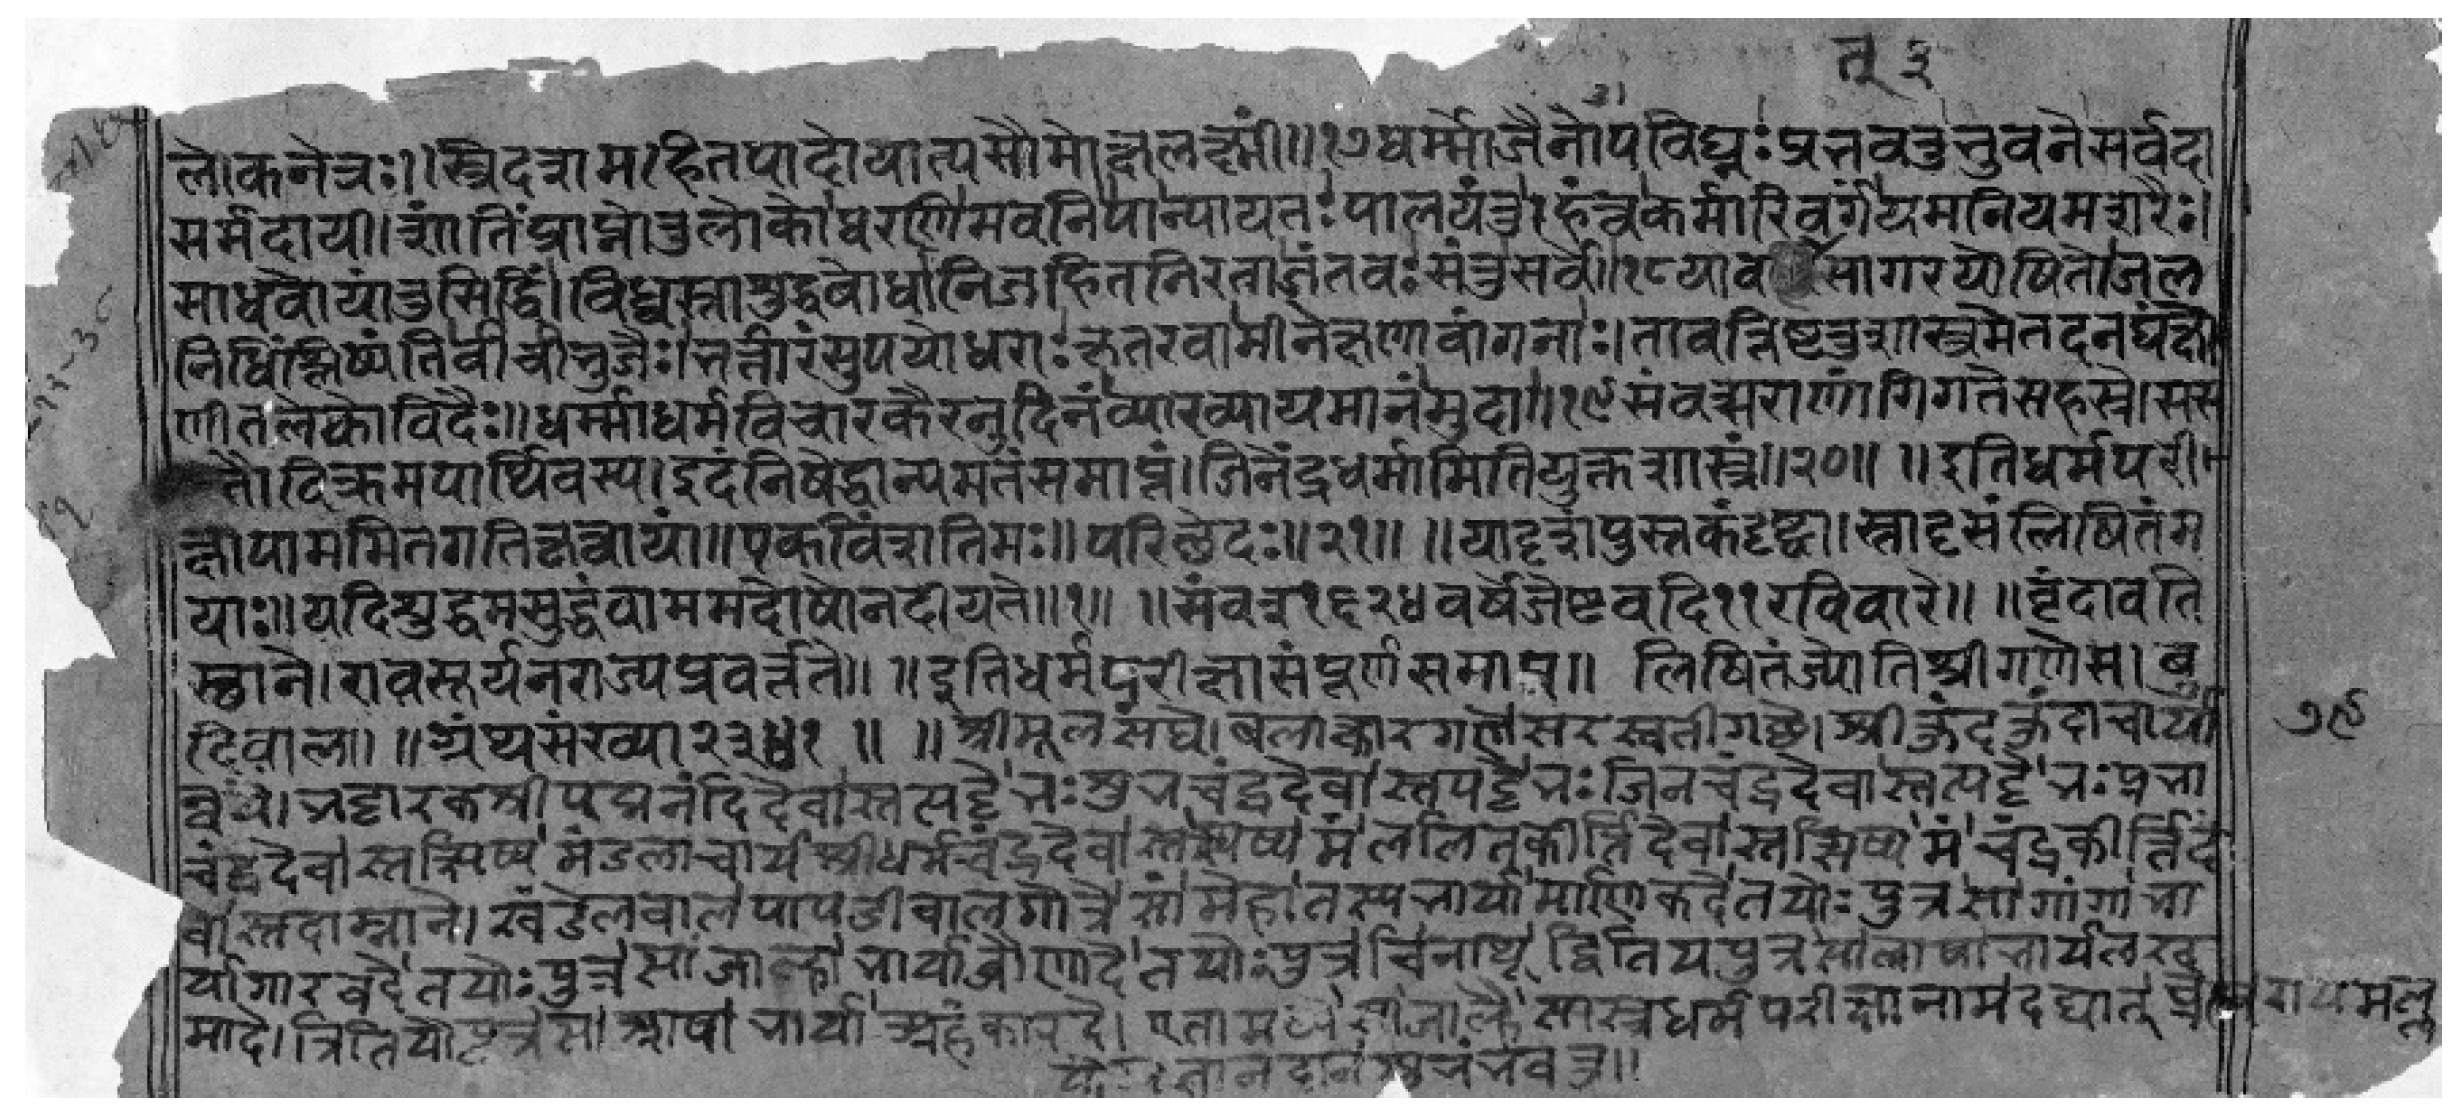 तू ३
लोकनेत्रः।।स्त्रिदशमहितपादोयात्यसौमोक्षलक्ष्मीं॥१७धर्म्मोजैनोपविघ्नःप्रभवतुभुवनेसर्वदा
सर्मदायी।शांतिंप्राप्नोतुलोकोधरणिमवनिपान्यायतःपालयंतु।हंत्वकर्मारिवर्गंयमनियमशरैः।
साधवोयांतुसिद्धिं।विध्वस्ताशुद्धबोधानिजहितनिरताजंतवःसंतुसर्वे॥१८याव सागरयोषितोजल
निधिंश्लिष्यंतिवीचीभुजैः।भर्त्तारंसुपयोधराःकृतरवामीनेक्षणावांगनाः।तावत्तिष्टतुशास्त्रमेतदनघंक्षो
णीतलेकोविदैः॥धर्म्माधर्मविचारकैरनुदिनंव्याख्यायमानंमुदा॥१९संवत्सराणांगिगतेसहस्रे।सस
तौविक्रमपार्थिवस्य।इदंनिषेद्धान्यमतंसमाप्तं।जिनेंद्रधर्मामितियुक्तशास्त्रं॥२०॥ ॥इतिधर्मपरी
क्षायाममितगतिकृतायां॥एकविंशतिमः॥परिछेदः॥२१॥ ॥यादृशंपुस्तकंदृष्ट्वा।स्तादृसंलिषितंम
याः॥यदिशुद्धमसुद्धंवाममदोषोनदीयते॥१॥ ॥संवत्१६२४वर्षेजेष्टवदि११रविवारे॥ ॥वृंदावति
स्छाने।रावसूर्यनराज्यप्रवर्त्तते॥ ॥इतिधर्मपरीक्षासंपूर्णसमाप्त॥ लिषितंज्योतिश्रीगणेस।बु
दिवाल॥ ॥ग्रंथसंख्या२३४१ ॥ ॥श्रीमूलसंघे।बलात्कारगणेसरस्वतीगछे।श्रीकुंदकुंदाचार्या
न्वये।भट्टारकश्रीपद्मनंदिदेवास्तत्पट्टेभःशुभचंद्रदेवास्तपट्टेभःजिनचंद्रदेवास्तत्पट्टेभःप्रभा
चंद्रदेवास्तत्सिष्यमंडलाचार्यश्रीधर्मचंद्रदेवास्तत्सिष्यमंललितकीर्त्तिदेवास्तत्सिष्यमंचंद्रकीर्त्तिदे
वास्तदाम्नाने।खंडेलवालपापडीवालगोत्रेसांमेहातस्यभार्यामाणिकदेतयोःपुत्रसागांगाभा
र्यागारवदेतयोःपुत्रसांजाल्हाभार्या तयोःपुत्र द्वितियपुत्र
मादे।त्रितियोपुत्रसाआषाभार्याअहंकारदे।एतामध्येसांजाल्हैसास्त्रधर्मपरीक्षानामदद्यात् रायमल्ल
ज्ञानदानंशुभंभवतु॥
७९